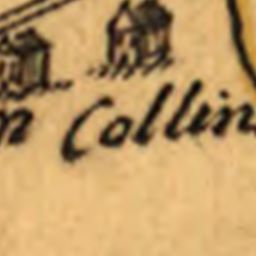 n Collin